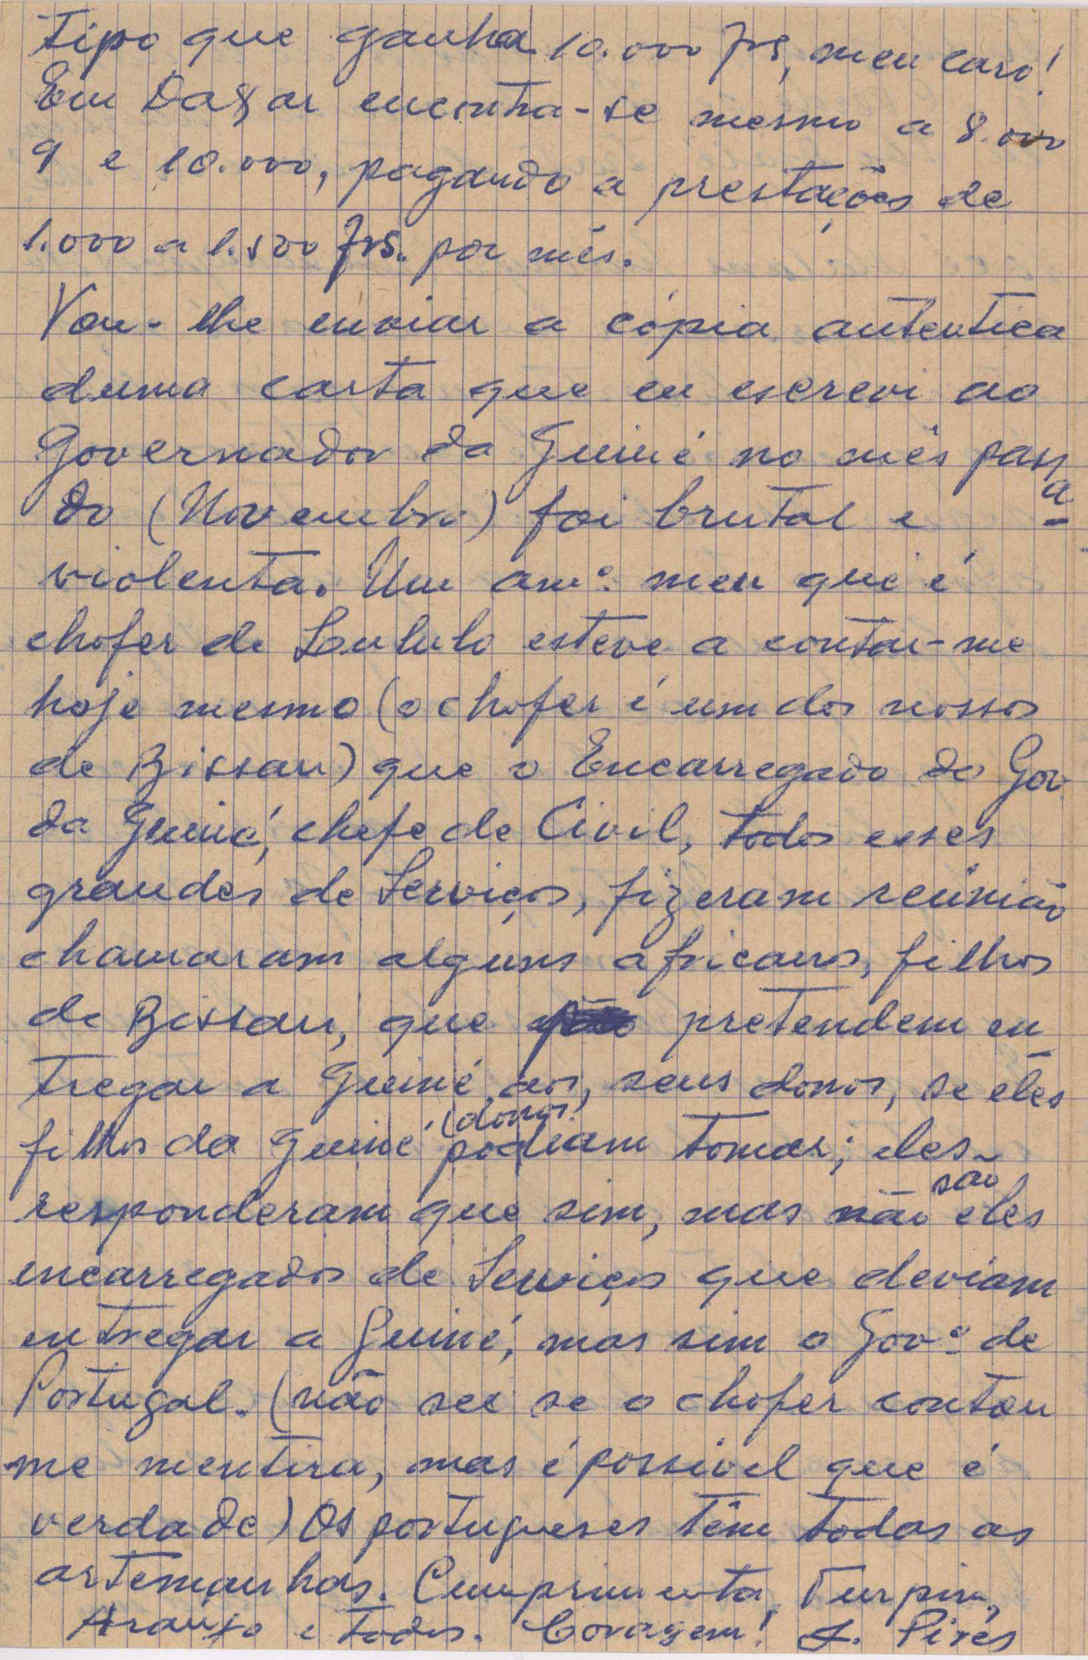 tipo que ganha 10.000 frs, meu caro!
Em Dakar encontra-se mesmo a 8.000
9 e 10.000, pagando a prestações de
1.000 a 1.500 frs. por mês.
Vou-lhe enviar a cópia autentica
duma carta que eu escrevi ao
Governador da Guiné no mês passa
do (Novembro) foi brutal e
violenta. Um amº. meu que é
chofer de Loululo esteve a contar-me
hoje mesmo (o chofer é um dos nossos
de Bissau) que o Encarregado do Gov
da Guiné, chefe de Civil, todos esses
grandes de Serviços, fizeram reúnião
chamaram alguns africanos, filhos
de Bissau, que pretendem en
tregar a Guiné aos, seus donos, se eles
(donos)
filhos da Guiné podiam tomar; eles
são
responderam que sim, mas não eles
encarregados de Serviços que deviam
entregar a Guiné, mas sim o Govº. de
Portugal. (não sei se o chofer contou
me mentira, mas é possivel que é
verdade) Os portugueses têm todas as
artemanhas. Cumprimenta, Turpin,
Araujo e todos. Coragem! L. Pires